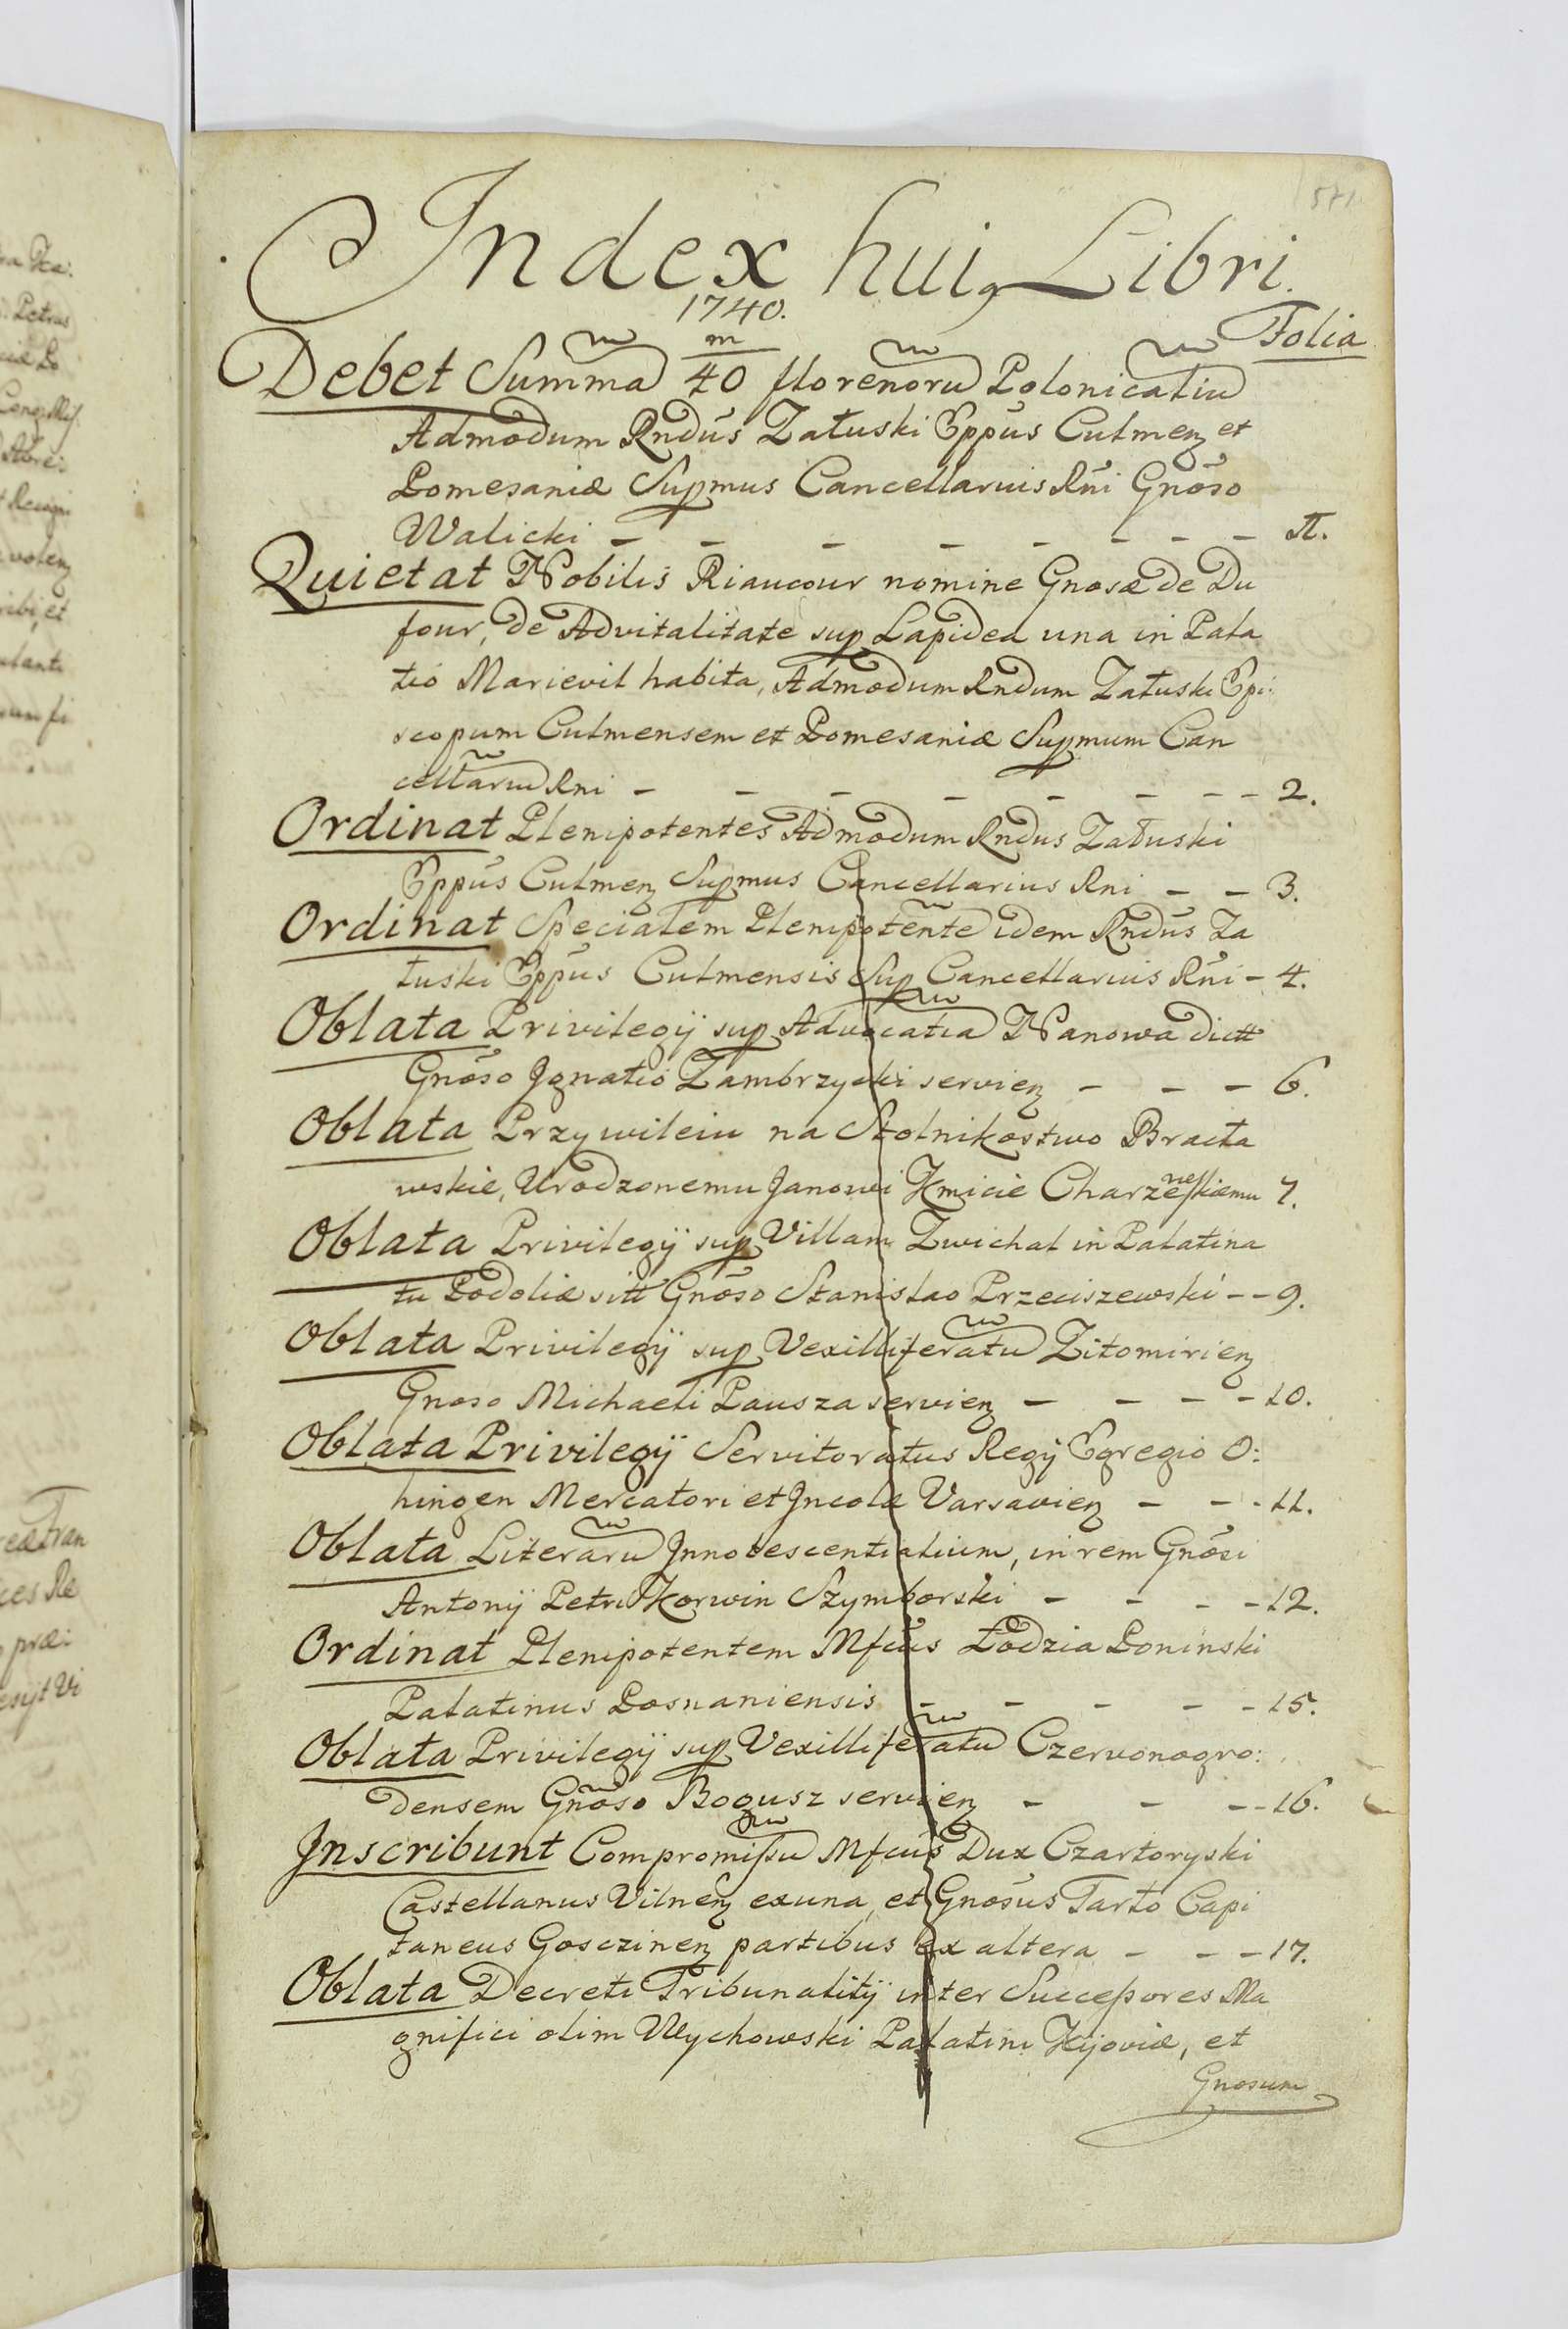 571
Index huiꝰ Libri.
1740.
Folia
Debet Summã 40 m florenorũ Polonicaliũ
Admodum Rndũs Załuski Eppũs Culmeȝ et
Pomesaniæ Supmus Cancellarius Rñi Gnõso
Walicki - - - - - - - - 1.
Quietat Nobilis Riaucour nomine Gnosæ de Du
four, de Advitalitate sup Lapidea una in Pala
tio Marievil habita, Admodum Rndum Załuski Epi:
scopum Culmensem et Pomesaniæ Supmum Can
cellariũ Rni - - - - - - - - 2.
Ordinat Plenipotentes Admodum Rndus Załuski
Eppũs Culmeȝ Supmus Cancellarius Rni - - 3.
Ordinat Specialem Plenipotentẽ idem Rndũs Za
łuski Eppũs Culmensis Sup Cancellarius Rñi - 4.
Oblata Privilegij sup Advocatiã Nanowa dictt
Gnõso Ignatio Zambrzycki servieȝ - - - 6.
Oblata Przywileiu na Stolnikostwo Bracła
wskie, Urodzonemu Janowi Kmicie Charzewskiemu 7.
Oblata Privilegij sup Villam Zwichal in Palatina
tu Podoliæ sitt Gnõso Stanislao Przeciszewski - - 9.
Oblata Privilegij sup Vexilliferatũ Zitomirieȝ
Gnoso Michaeli Pausza servieȝ - - - - 10.
Oblata Privilegij Servitoratus Regij Egregio O:
hingen Mercatori et Incolæ Varsavieȝ - - - 11.
Oblata Literarũ Innotescentialium, in rem Gnõsi
Antonij Petri Korwin Szymborski - - - - 12.
Ordinat Plenipotentem Mfcũs Łodzia Poninski
Palatinus Posnaniensis - - - - - 15.
Oblata Privilegij sup Vexilliferatũ Czervonogro:
densem Gnõso Bogusz servieȝ - - - - 16.
Inscribunt Compromissũ Mfcus Dux Czartoryski
Castellanus Vilneȝ ex una, et Gnosus Tarło Capi
taneus Gosczineȝ partibus ex altera - - - 17.
Oblata Decreti Tribunalitij inter Successores Ma
gnifici olim Wychowski Palatini Kijoviæ, et
Gnosum